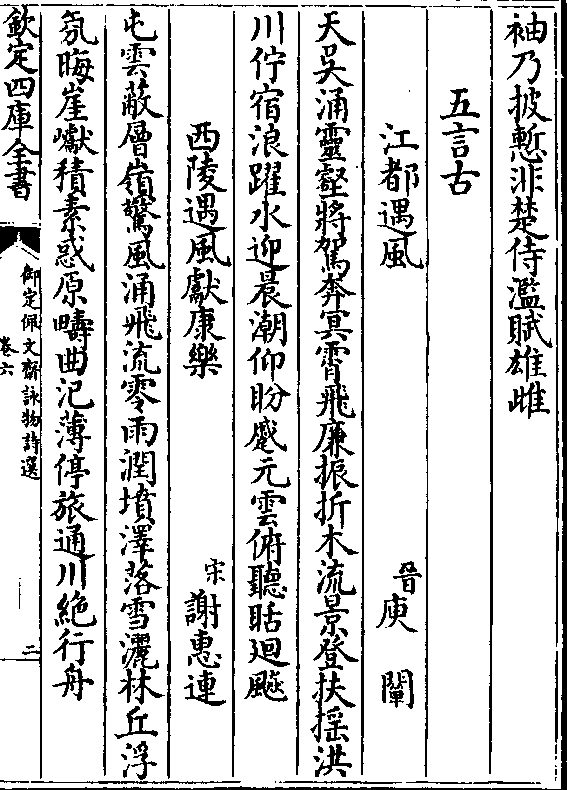 袖乃披慙非楚侍濫賦雄雌
五言古
江都遇風 晉庾闡
天吳涌靈壑將駕奔冥霄飛廉振折木流景登扶揺洪
川佇宿浪躍水迎晨潮仰盼蹙元雲俯聽聒廻飈
西陵遇風獻康樂 宋謝惠連
屯雲蔽層嶺驚風涌飛流零雨潤墳澤落雪灑林丘浮
氛晦崖巘積素惑原疇曲汜薄停旅通川絶行舟
欽定四庫全書
御定佩文齋詠物詩選
卷六
二